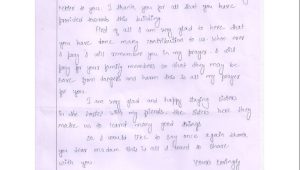 Notre to you. I thank you for all that you have
provided towards this building
And of all I am very glad to here that
you have done many contribution to us. what ever
I pray I still remember you in my prayer. I still
pray for your family members so that they may be
save from dangers and harm this is all my prayer
for you.
I am very glad and happy staying sisters
in the hostel with my friends. the sisters here they
make us to learn many good things
So I would like to say once again thank
you dear madam this is all I want to share
with you
Yours lovingly